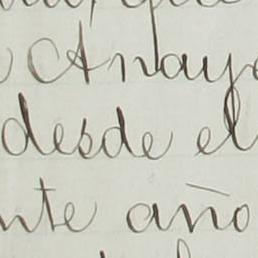 Anaya
desde el
nte año